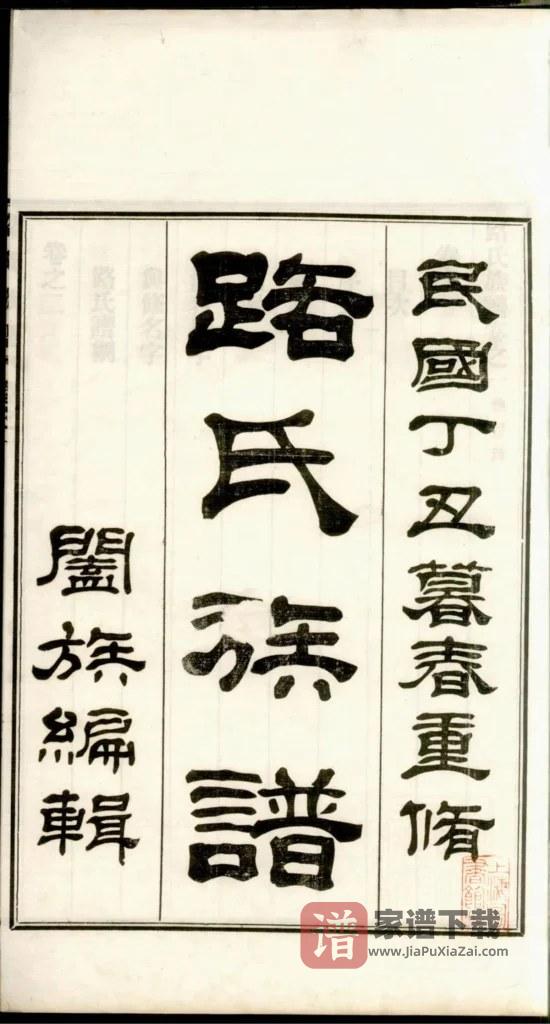 民國丁丑暮春重脩
路氏族譜
闔族編輯
谱 家谱下载
www.JiaPuXiaZai.com